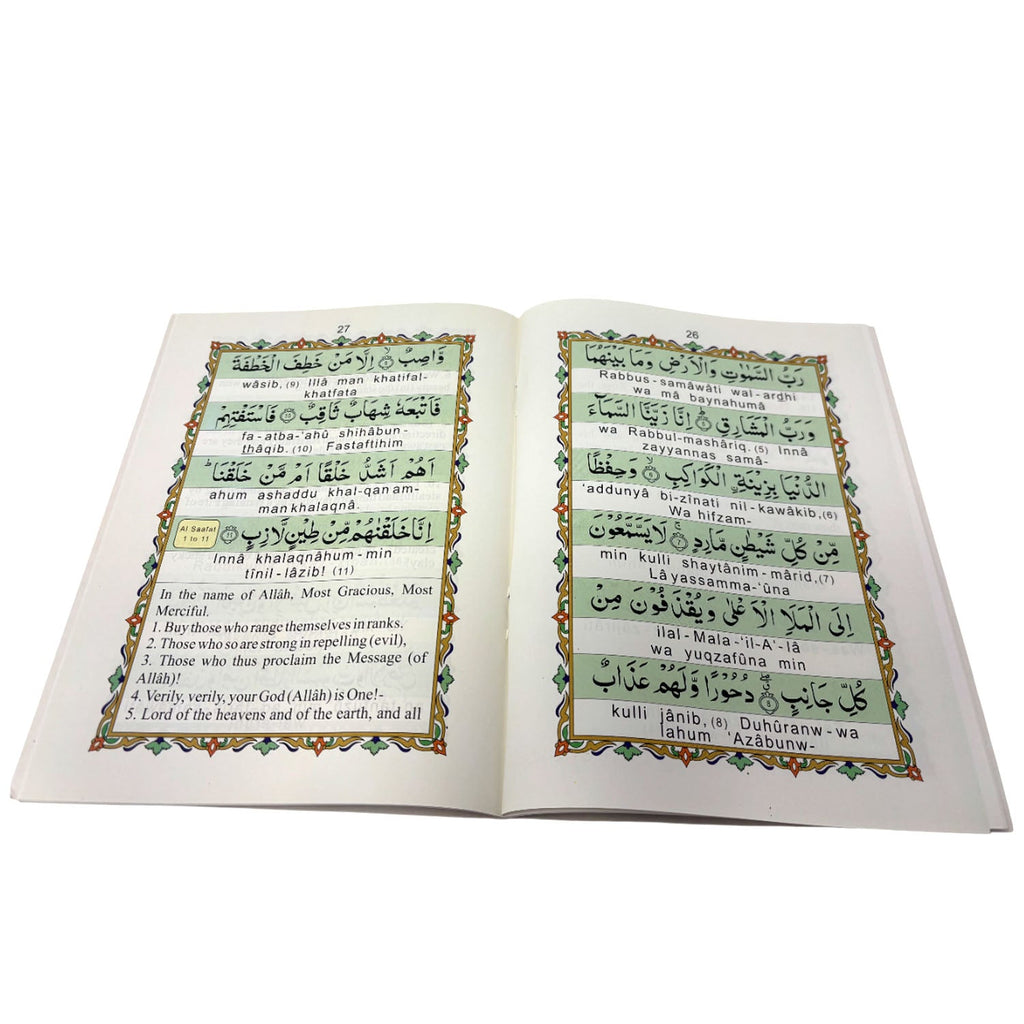 26
رَبُّ السَّمٰوٰتِ وَالْاَرْضِ وَمَا بَيْنَهُمَا
Rabbus-samâwâti wal-ardhi
wa mâ baynahumâ
وَرَبُّ الْمَشَارِقِ ۵ اِنَّا زَيَّنَّا السَّمَآءَ
wa Rabbul-mashâriq.(5) Innâ
zayyannas samâ-
الدُّنْيَا بِزِيْنَةِ ۨالْكَوَاكِبِ ۶ وَحِفْظًا
'addunyâ bi-zînati nil-kawâkib,(6)
Wa hifzam-
مِّنْ كُلِّ شَيْطٰنٍ مَّارِدٍ ۷ لَا يَسَّمَّعُوْنَ
min kulli shaytânim-mârid,(7)
Lâ yassamma-'ûna
اِلَى الْمَلَاِ الْاَعْلٰى وَيُقْذَفُوْنَ مِنْ
ilal-Mala-'il-A'-lâ
wa yuqzafûna min
كُلِّ جَانِبٍ ۸ دُحُوْرًا وَّلَهُمْ عَذَابٌ
kulli jânib,(8) Duhûranw-wa
lahum 'Azâbunw-
27
وَّاصِبٌ ۹ اِلَّا مَنْ خَطِفَ الْخَطْفَةَ
wâsib,(9) Illâ man khatifal-
khatfata
فَاَتْبَعَهٗ شِهَابٌ ثَاقِبٌ ۱۰ فَاسْتَفْتِهِمْ
fa-atba-'ahû shihâbun-
thâqib.(10) Fastaftihim
اَهُمْ اَشَدُّ خَلْقًا اَمْ مَّنْ خَلَقْنَا ؕ
ahum ashaddu khal-qan am-
man khalaqnâ.
اِنَّا خَلَقْنٰهُمْ مِّنْ طِيْنٍ لَّازِبٍ ۱۱
Al Saafat
1 to 11
Innâ khalaqnâhum-min
tînil-lâzib! (11)
In the name of Allâh, Most Gracious, Most
Merciful.
1. Buy those who range themselves in ranks.
2. Those who so are strong in repelling (evil),
3. Those who thus proclaim the Message (of
Allâh)!
4. Verily, verily, your God (Allâh) is One!-
5. Lord of the heavens and of the earth, and all